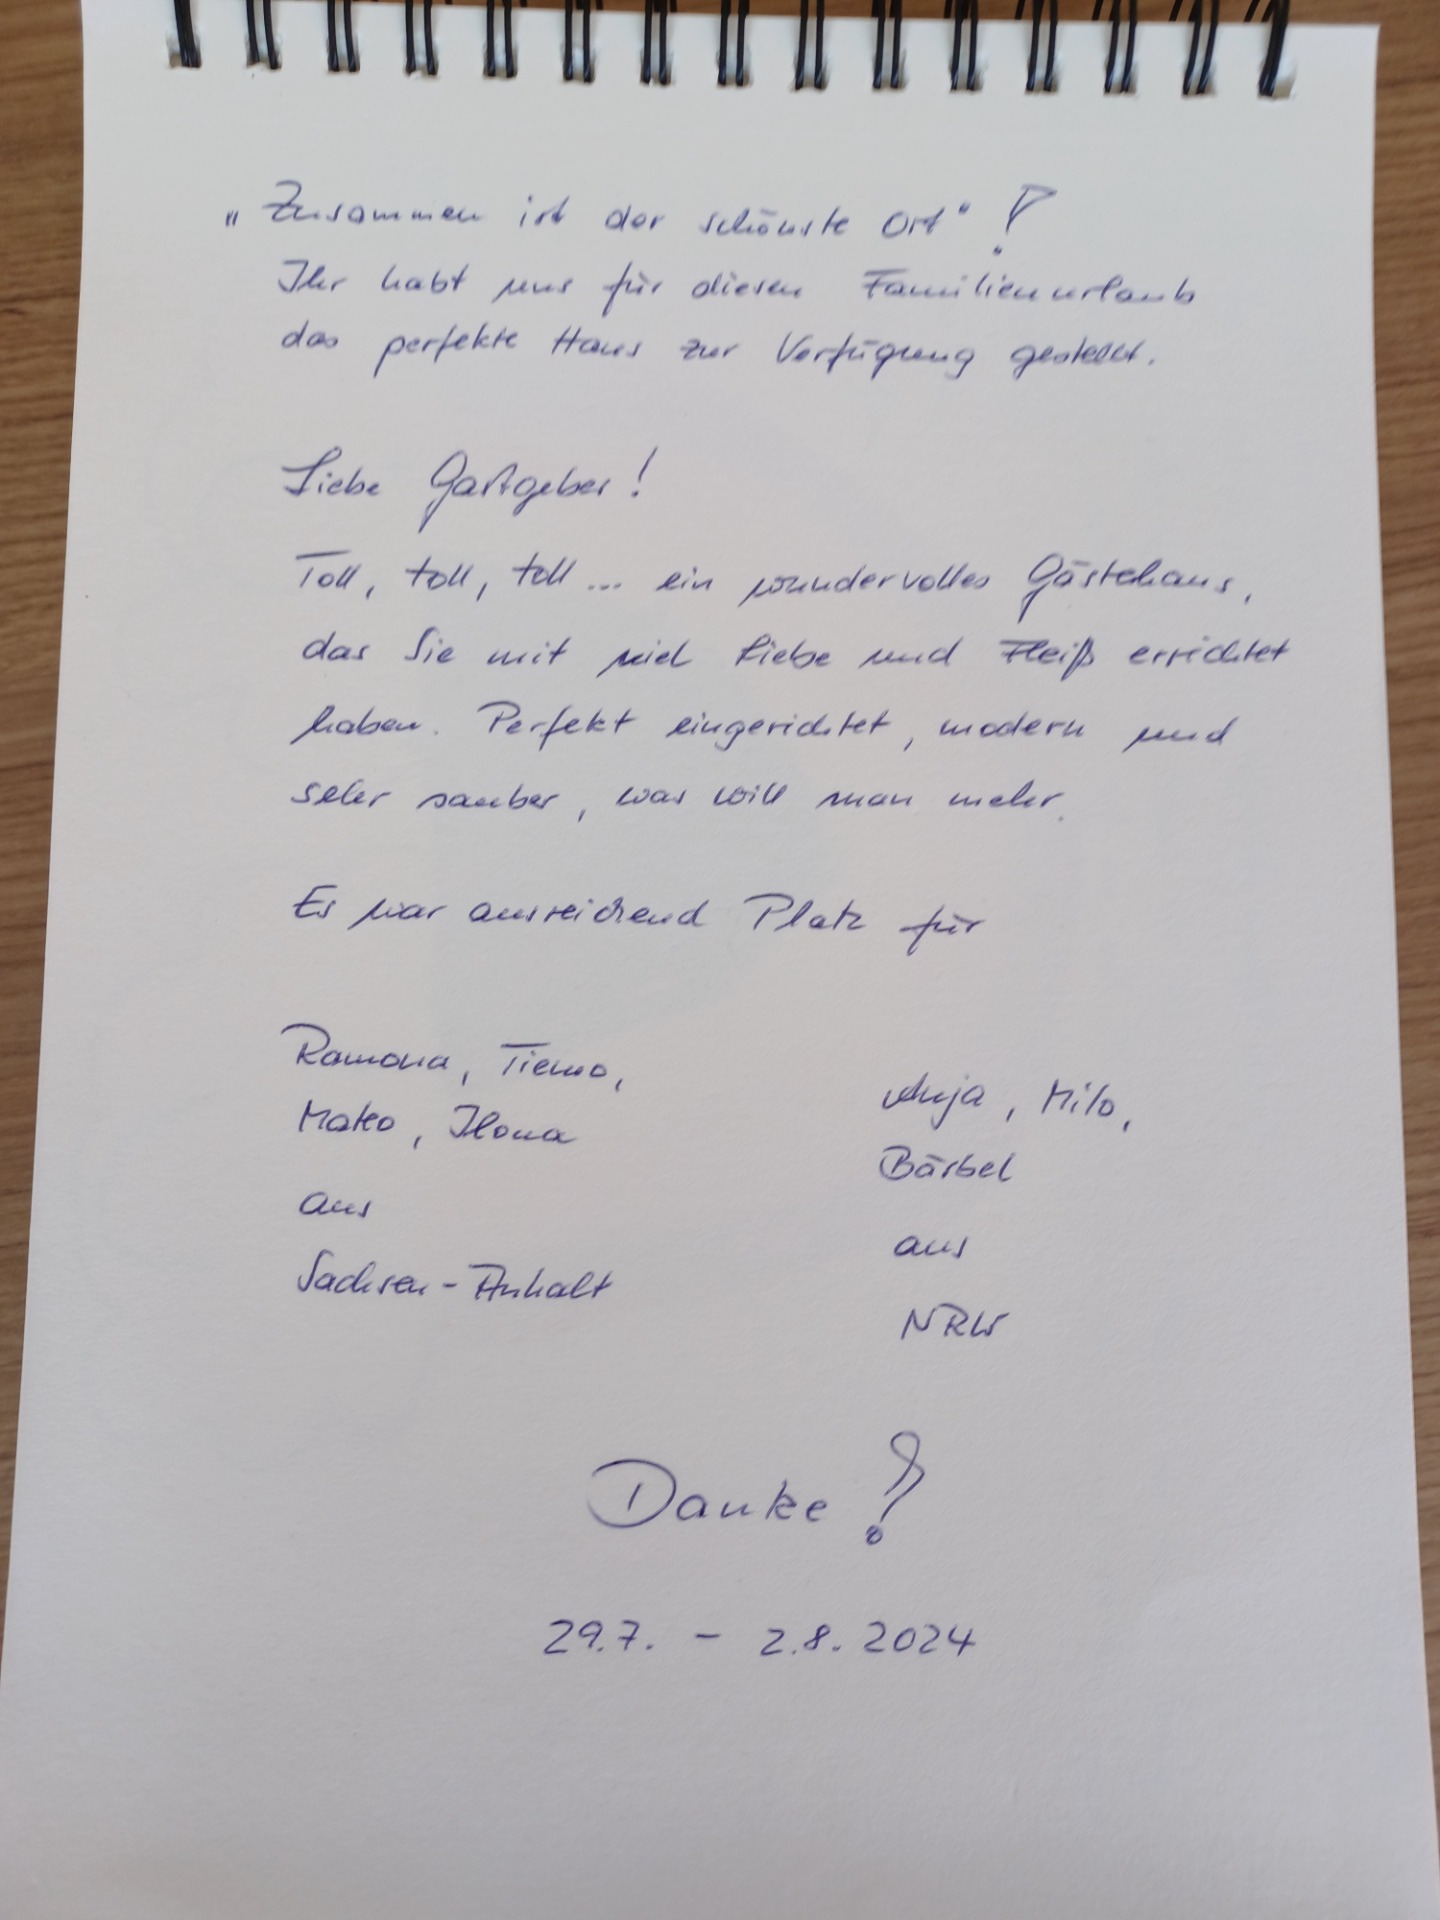 „Zusammen ist der schönste Ort“!
Ihr habt uns für diesen Familienurlaub
das perfekte Haus zur Verfügung gestellt.
Liebe Gastgeber!
Toll, toll, toll... ein wundervolles Gästehaus,
das Sie mit viel Liebe und Fleiß errichtet
haben. Perfekt eingerichtet, modern und
sehr sauber, was will man mehr.
Es war ausreichend Platz für
Ramona, Tiemo,
Mateo, Ilona
aus
Sachsen-Anhalt
Anja, Milo,
Bärbel
aus
NRW
Danke!
29.7. - 2.8. 2024